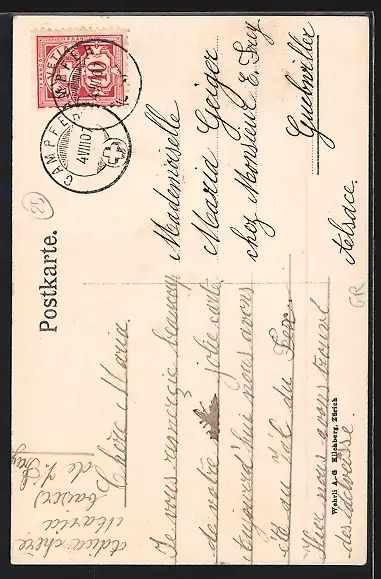 Postkarte.
HELVETIA
10
CAMPFER
4.VIII.07
CAMPFER
Mademoiselle
Maria Geiger
chez Monsieur E. Frey
Guebwiller
Alsace.
Chère Maria.
Je vous remercie beaucoup
de votre jolie carte
Aujourd'hui nous avons
été au Val du Fex.
Hier nous avons trouvé
des edelweisse.
Adieu chère
Maria
baisers
de
Wehrli A.-G. Kilchberg, Zürich
25
GR